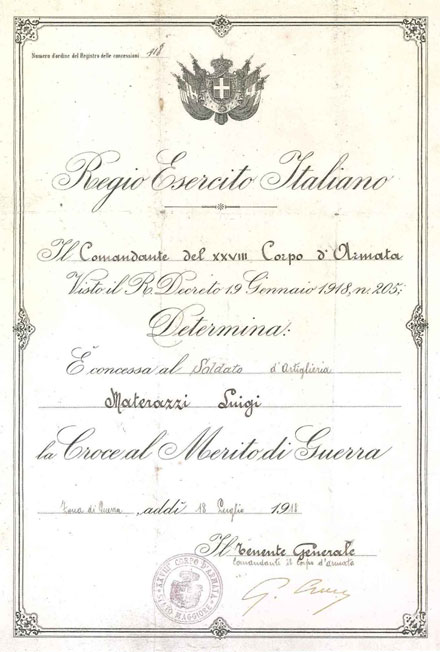 Numero d'ordine del Registro delle concessioni 418
Regio Esercito Italiano
Il Comandante del XXVIII Corpo d'Armata
Visto il R. Decreto 19 Gennaio 1918, n. 205;
Determina:
È concessa al Soldato d'Artiglieria
Materazzi Luigi
la Croce al Merito di Guerra
Zona di Guerra, addì 18 Luglio 1918
Il Tenente Generale
Comandante il Corpo d'armata
XXVIII CORPO D'ARMATA
G.